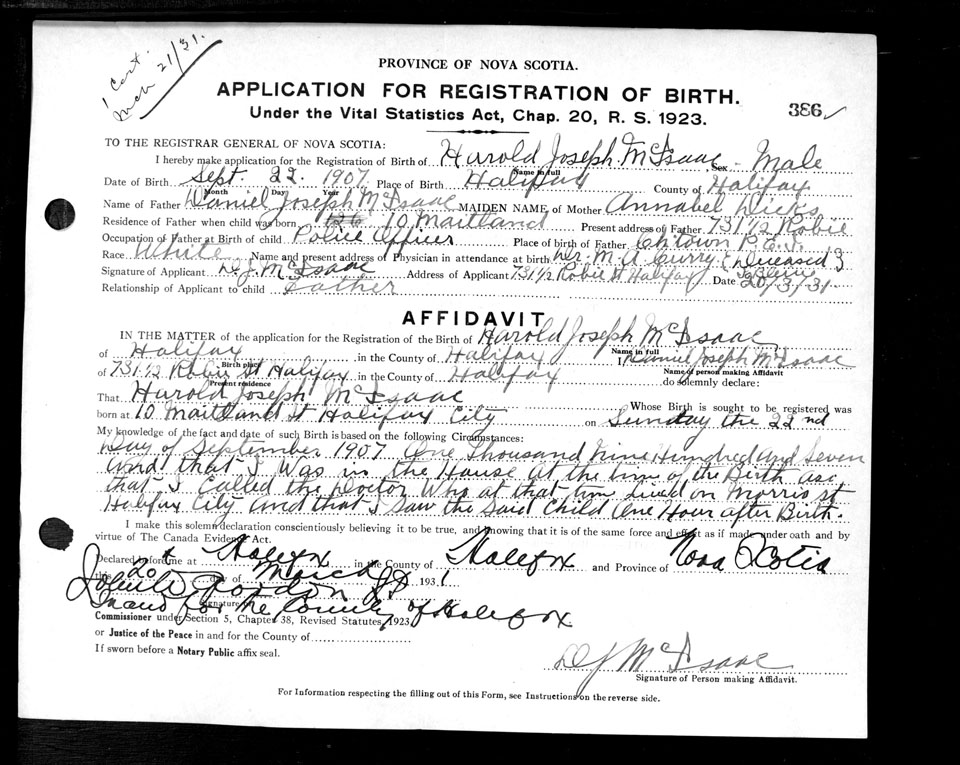 1 Cert.
Mch 21/31.
PROVINCE OF NOVA SCOTIA.
APPLICATION FOR REGISTRATION OF BIRTH.
386
Under the Vital Statistics Act, Chap. 20, R. S. 1923.
TO THE REGISTRAR GENERAL OF NOVA SCOTIA:
I hereby make application for the Registration of Birth of Harold Joseph McIsaac Sex - Male
Name in full
Date of Birth Sept. 22. 1907 Place of Birth Halifax County of Halifax
Month Day Year
Name of Father Daniel Joseph McIsaac MAIDEN NAME of Mother Annabel Dicks
Residence of Father when child was born 10 Maitland Present address of Father 731 1/2 Robie
Occupation of Father at Birth of child Police Officer Place of birth of Father Ch.town P.E.I.
Race White Name and present address of Physician in attendance at birth Dr. M. A. Curry (Deceased)
Signature of Applicant D. J. McIsaac Address of Applicant 731 1/2 Robie St Halifax Date 20/3/31
Relationship of Applicant to child Father
AFFIDAVIT
IN THE MATTER of the application for the Registration of the Birth of Harold Joseph McIsaac
Name in full
of Halifax in the County of Halifax I Daniel Joseph McIsaac
Birth place
Name of person making Affidavit
of 731 1/2 Robie St Halifax in the County of Halifax do solemnly declare:
Present residence
That Harold Joseph McIsaac Whose Birth is sought to be registered was
born at 10 Maitland St Halifax City on Sunday the 22nd
My knowledge of the fact and date of such Birth is based on the following Circumstances:
Day of September 1907 One Thousand Nine Hundred And Seven
and that I Was in the House At the time of the Birth also
that I Called the Doctor Who at that time lived on Morris St
Halifax City And that I saw the Said Child One Hour after Birth.
I make this solemn declaration conscientiously believing it to be true, and knowing that it is of the same force and effect as if made under oath and by
virtue of The Canada Evidence Act.
Declared before me at Halifax in the County of Halifax and Province of Nova Scotia
this 20th day of March 1931
J.P.
In and for the County of Halifax
Signature of
Commissioner under Section 5, Chapter 38, Revised Statutes, 1923
or Justice of the Peace in and for the County of
If sworn before a Notary Public affix seal.
D J McIsaac
Signature of Person making Affidavit.
For Information respecting the filling out of this Form, see Instructions on the reverse side.